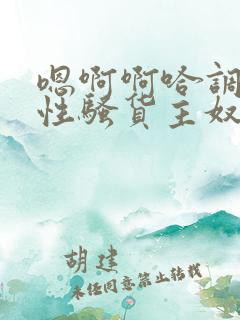 嗯啊啊哈調
性騷货主奴
胡建
未经同意禁止转载